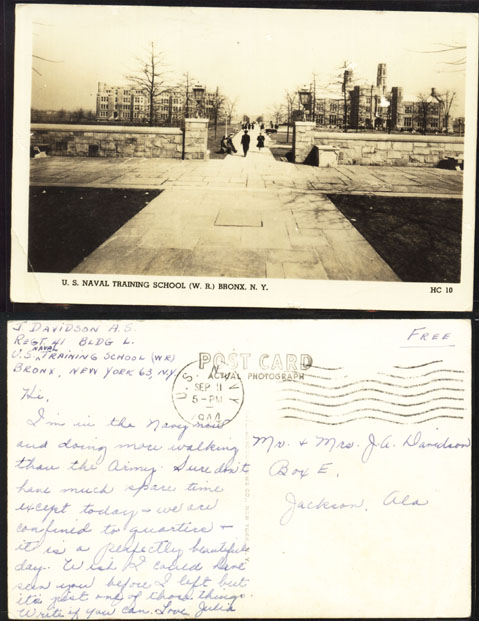 U. S. NAVAL TRAINING SCHOOL (W. R.) BRONX, N. Y.
HC 10
J. DAVIDSON A.S.
REGT. 41 BLDG L.
U.S. NAVAL TRAINING SCHOOL (WR)
BRONX, NEW YORK 63, N.Y.
FREE
POST CARD
ACTUAL PHOTOGRAPH
U. S. NAVY
SEP 11
5-PM
1944
Hi,
I'm in the Navy now
and doing more walking
than the Army. Sure don't
have much spare time
except today - we are
confined to quarters -
it is a perfectly beautiful
day. Wish I could have
seen you before I left but
it's just one of those things.
Write if you can. Love, Julia
Mr. & Mrs. J.A. Davidson
Box E.
Jackson, Ala